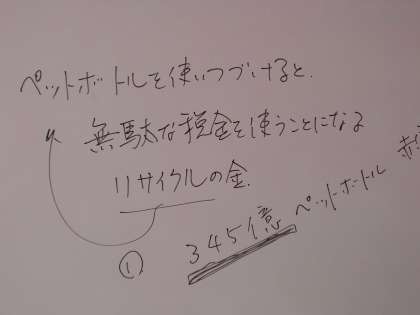 ペットボトルを使いつづけると.
無駄な税金を使うことになる
リサイクルの金.
① 345億 ペットボトル